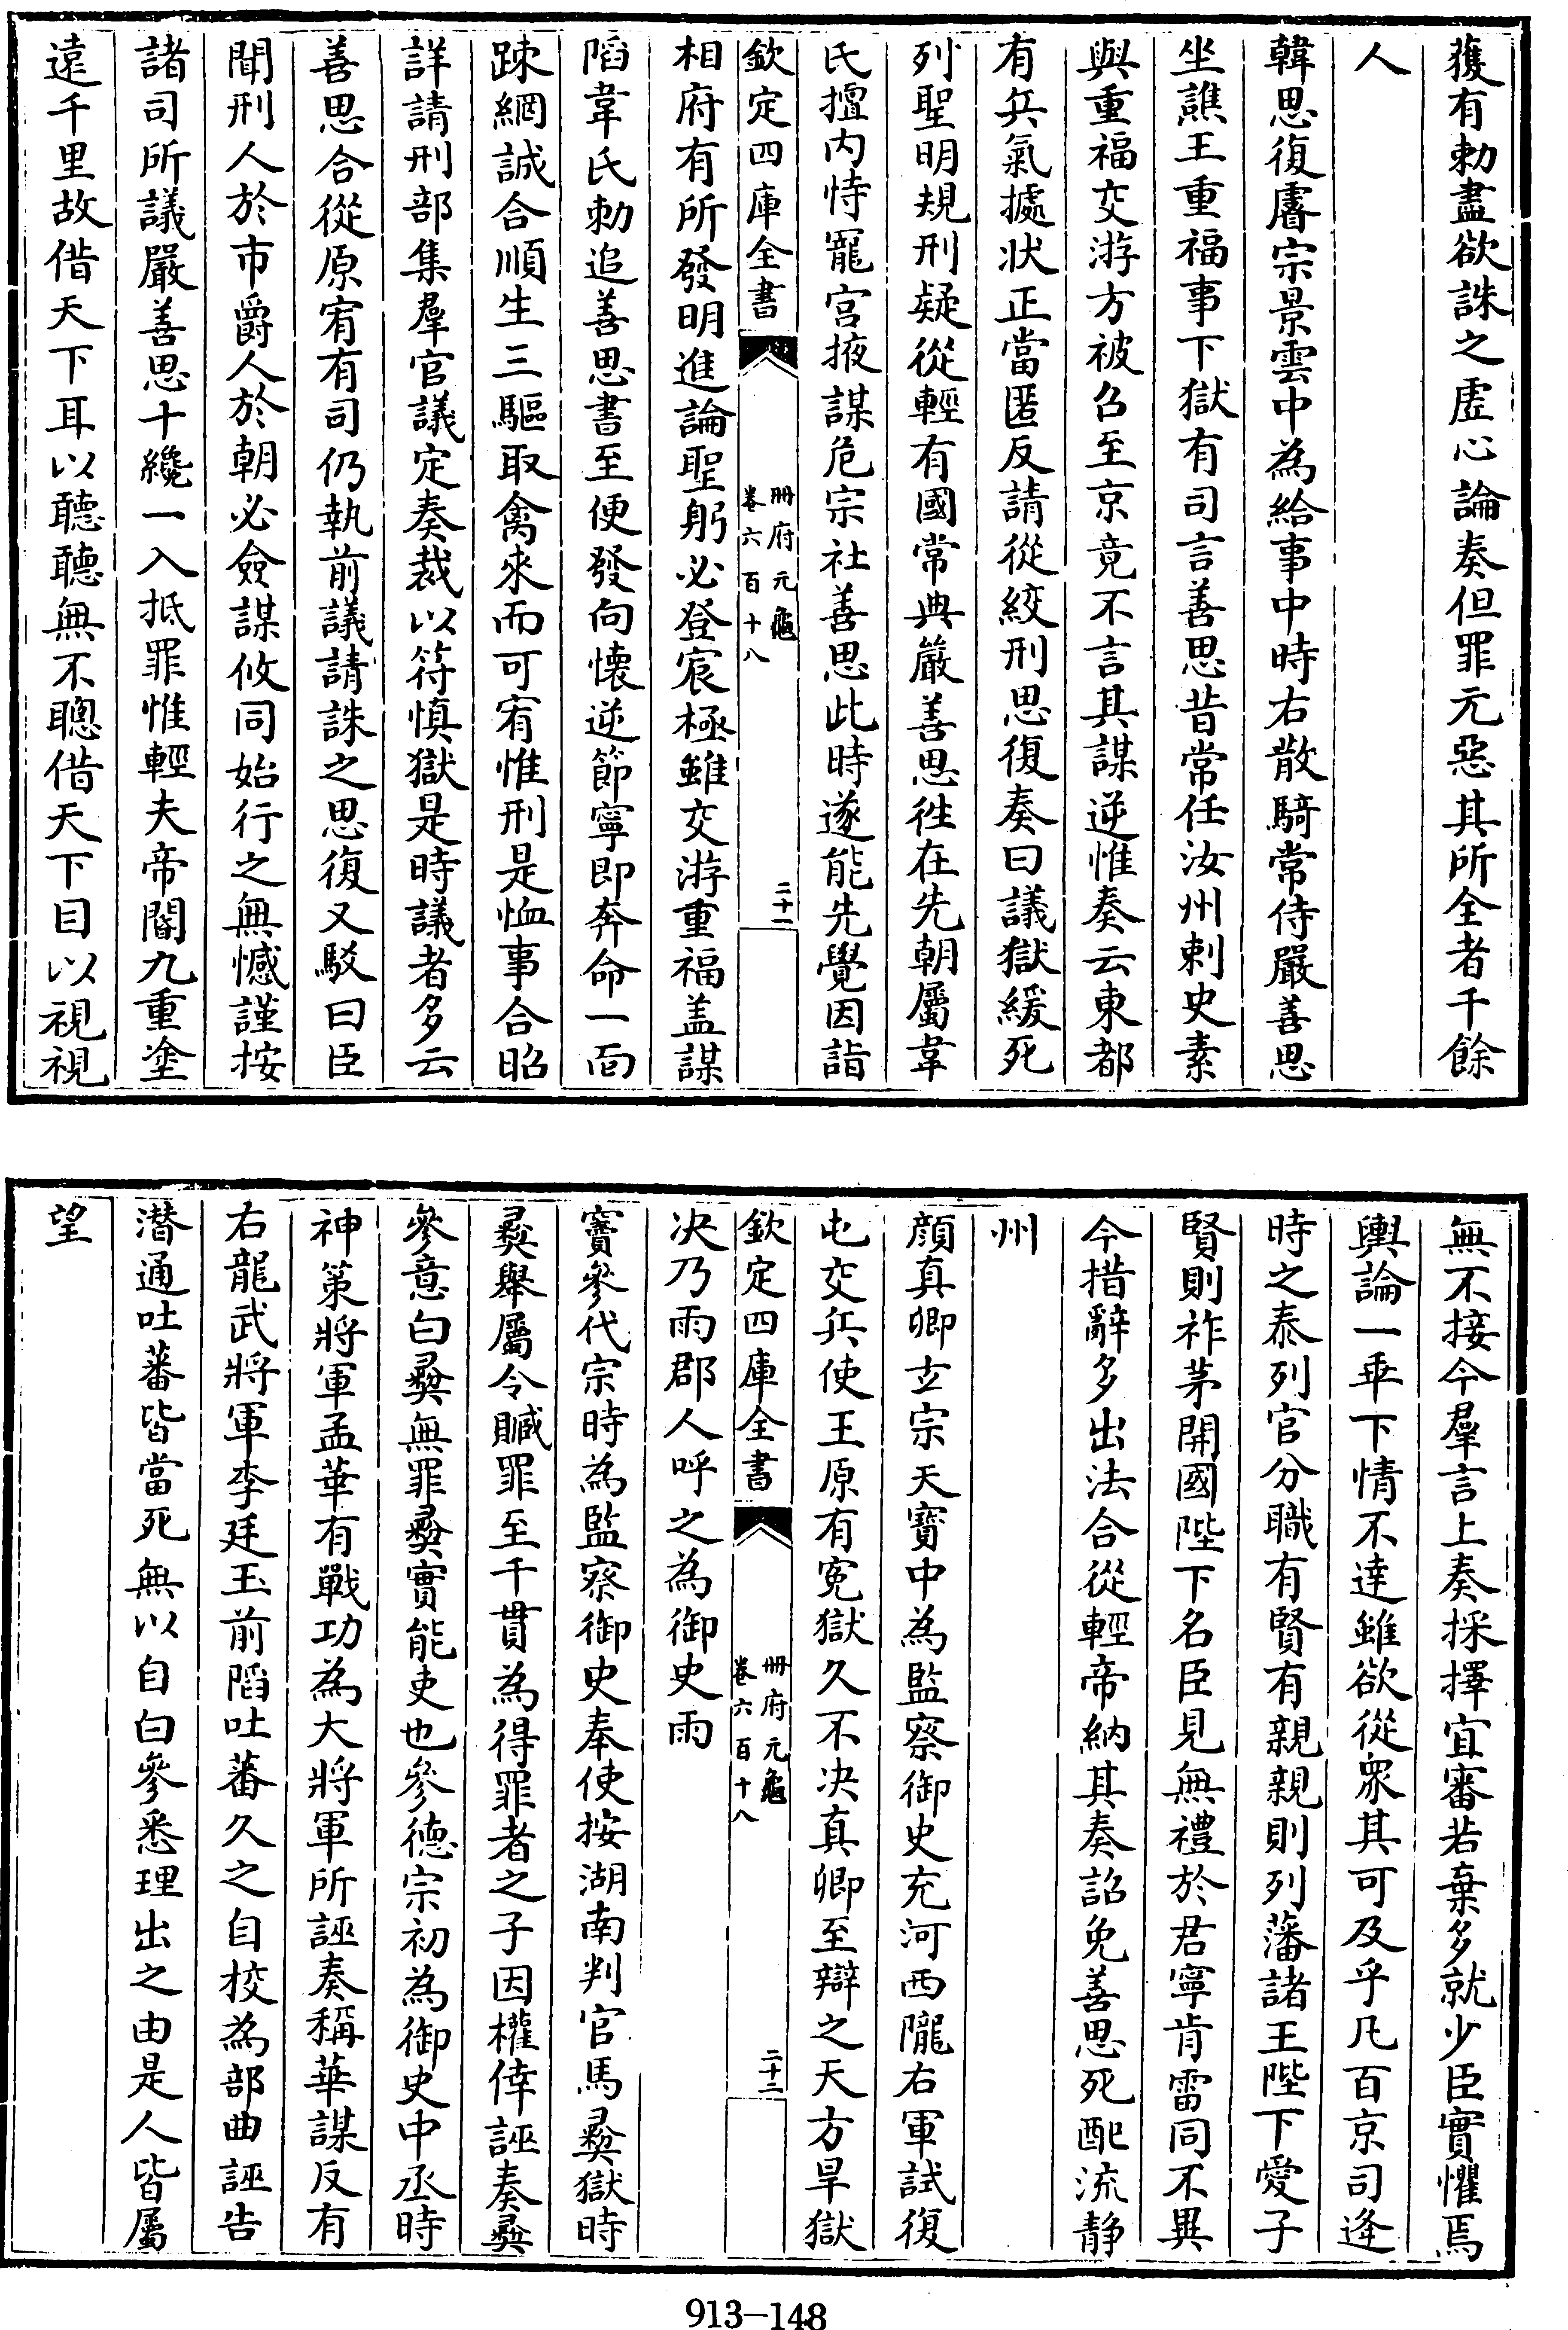 獲有勅盡欲誅之虛心論奏但罪元惡其所全者千餘
人
韓思復睿宗景雲中為給事中時右散騎常侍嚴善思
坐譙王重福事下獄有司言善思昔常任汝州刺史素
與重福交游方被召至京竟不言其謀逆惟奏云東都
有兵氣據狀正當匿反請從絞刑思復奏曰議獄緩死
列聖明規刑疑從輕有國常典嚴善思徃在先朝屬韋
氏擅内恃寵宫掖謀危宗社善思此時遂能先覺因詣
欽定四庫全書
冊府元龜
卷六百十八
二十一
相府有所發明進論聖躬必登宸極雖交游重福盖謀
陷韋氏勅追善思書至便發向懷逆節寧即奔命一面
踈綱誠合順生三驅取禽來而可宥惟刑是恤事合昭
詳請刑部集羣官議定奏裁以符慎獄是時議者多云
善思合從原宥有司仍執前議請誅之思復又駁曰臣
聞刑人於市爵人於朝必僉謀攸同始行之無憾謹按
諸司所議嚴善思十纔一入抵罪惟輕夫帝閽九重塗
遠千里故借天下耳以聽聽無不聰借天下目以視視
無不接今羣言上奏採擇宜審若棄多就少臣實懼焉
輿論一乖下情不達雖欲從衆其可及乎凡百京司逄
時之泰列官分職有賢有親親則列藩諸王陛下愛子
賢則祚茅開國陛下名臣見無禮於君寧肯雷同不異
今措辭多出法合從輕帝納其奏詔免善思死配流静
州
顔真卿𤣥宗天寳中為監察御史充河西隴右軍試復
屯交兵使王原有寃獄久不決真卿至辯之天方旱獄
欽定四庫全書
冊府元龜
卷六百十八
二十二
决乃雨郡人呼之為御史雨
竇參代宗時為監察御史奉使按湖南判官馬彛獄時
彛舉屬令贓罪至千貫為得罪者之子因權倖誣奏彛
參意白彛無罪彛實能吏也參德宗初為御史中丞時
神策將軍孟華有戰功為大將軍所誣奏稱華謀反有
右龍武將軍李廷玉前陷吐蕃久之自校為部曲誣告
潜通吐蕃皆當死無以自白參悉理出之由是人皆屬
望
913-148